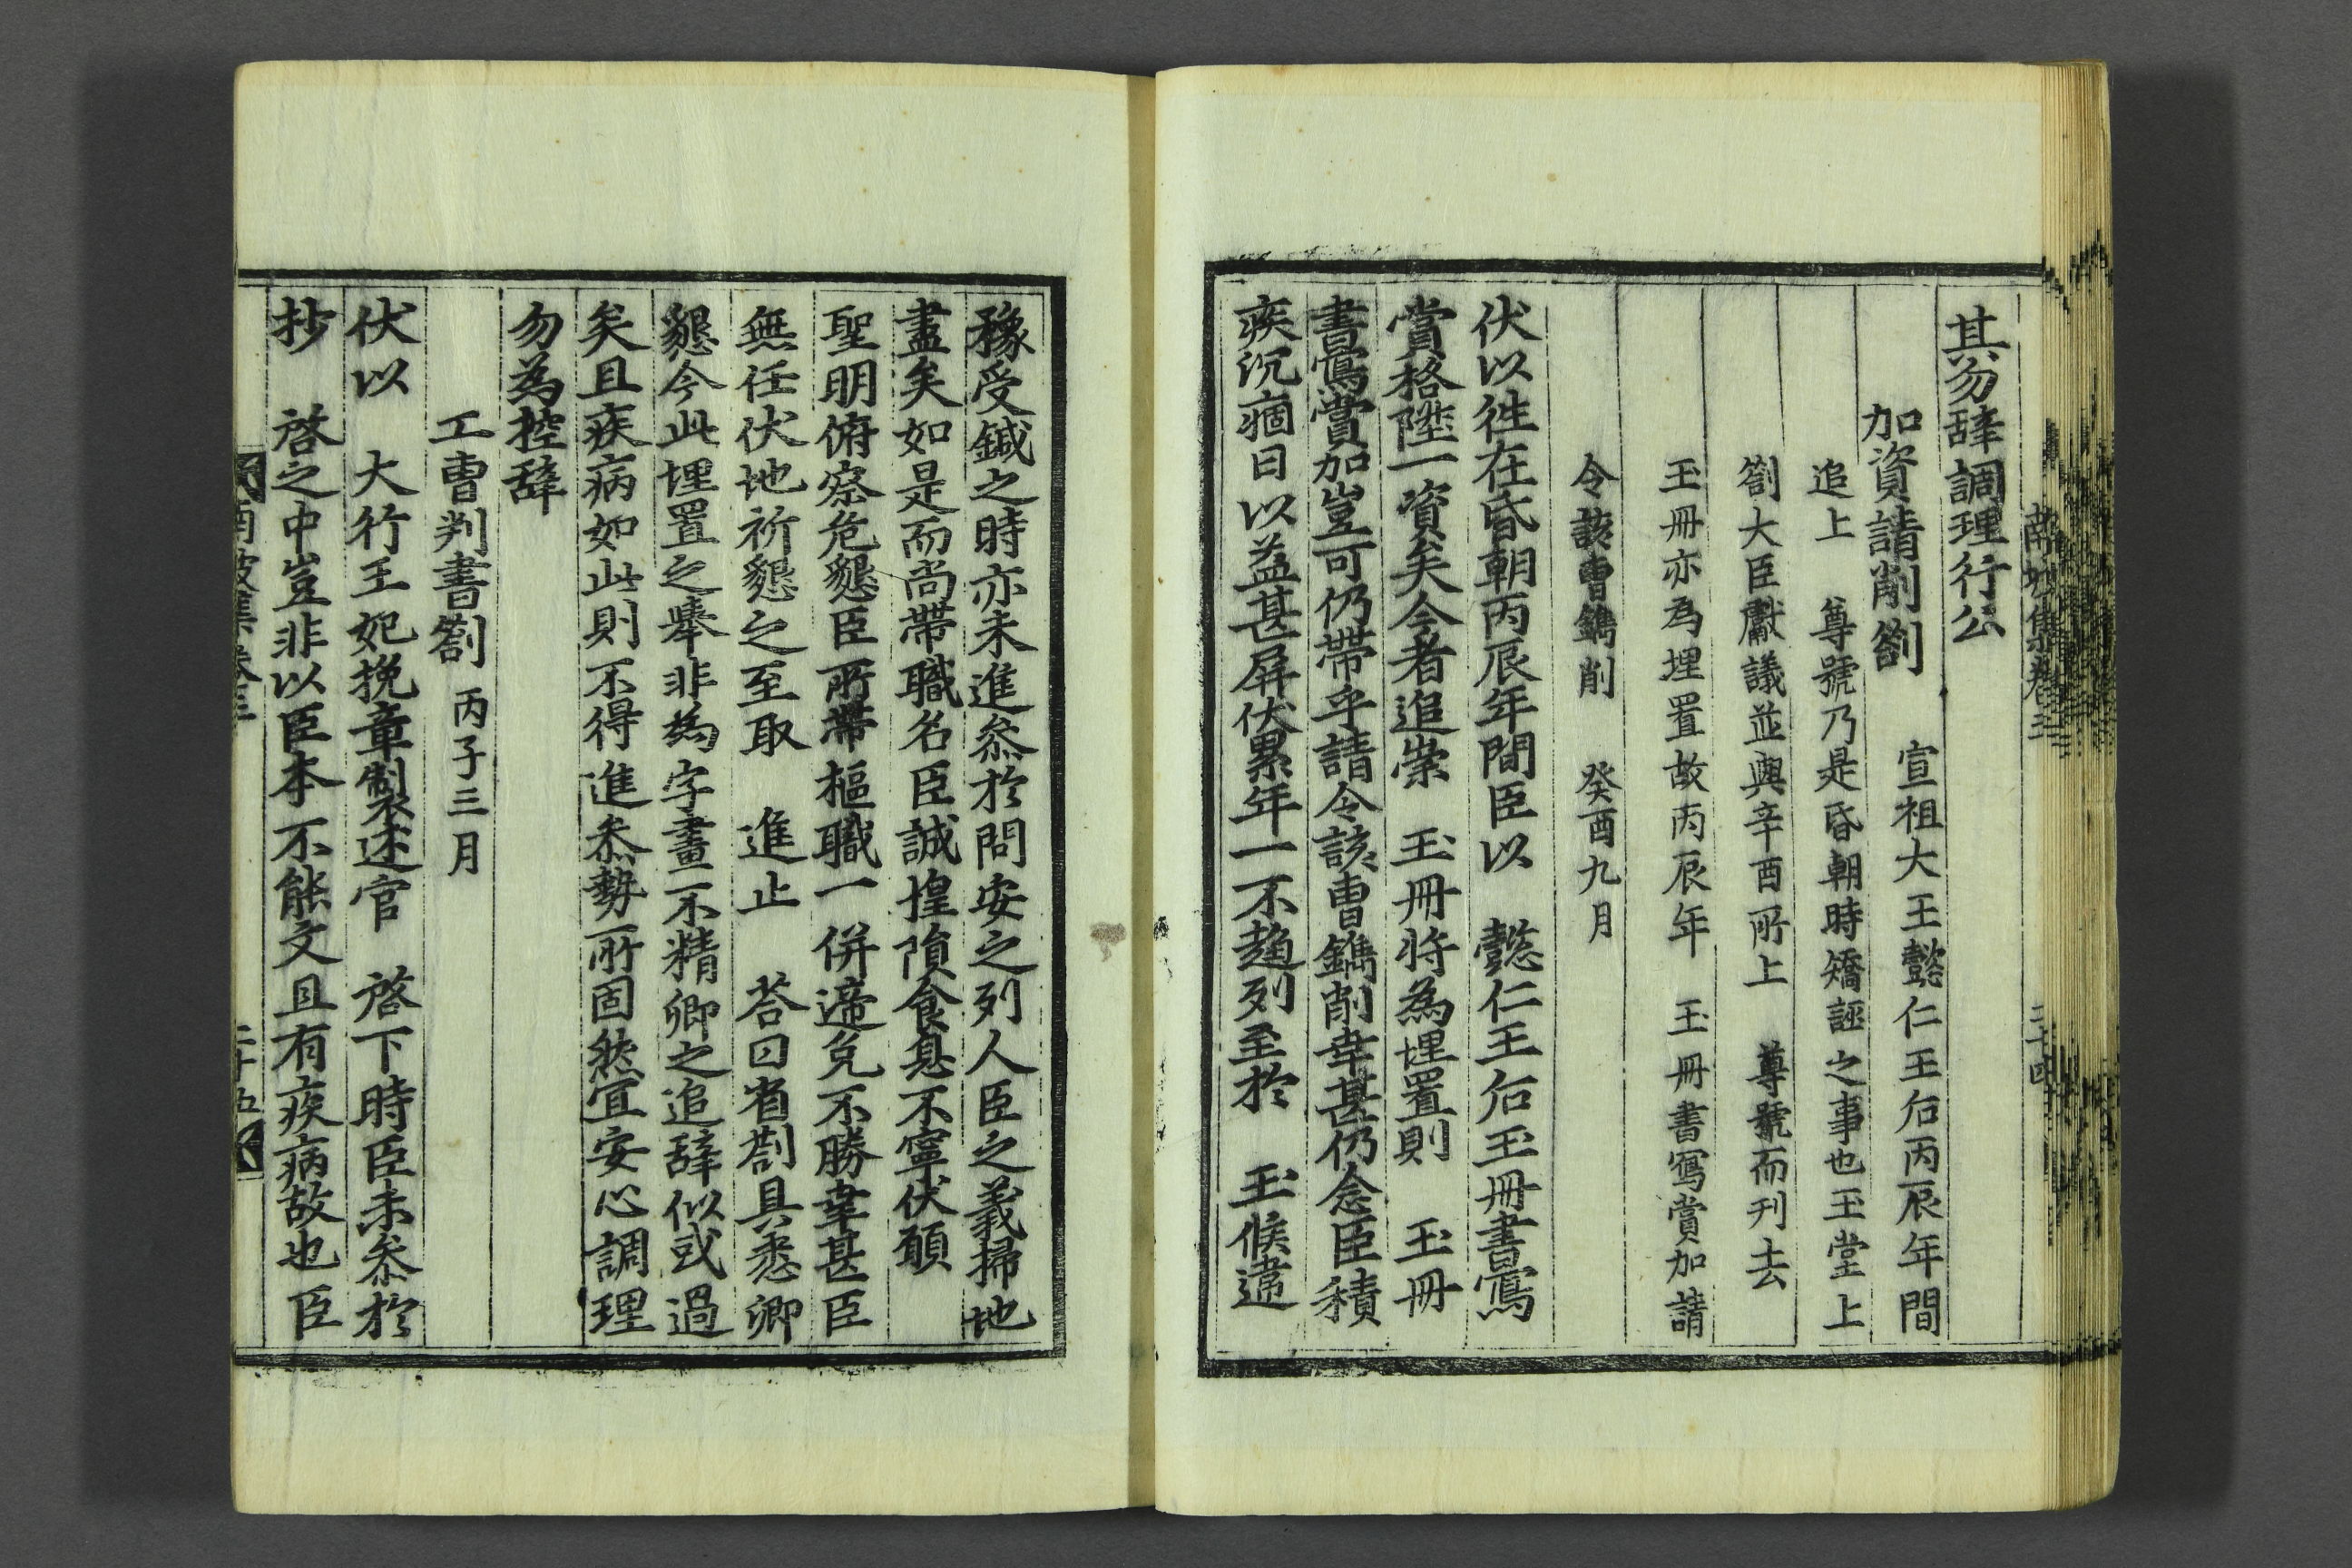 其勿辭調理行公
加資請削劄 宣祖大王懿仁王后丙辰年間
追上 尊號乃是昏朝時矯誣之事也玉堂上
劄大臣獻議並與辛酉所上 尊號而刊去
玉冊亦爲埋置故丙辰年 玉冊書寫賞加請
令該曹鐫削 癸酉九月
伏以徃在昏朝丙辰年間臣以 懿仁王后玉冊書寫
賞格陞一資矣今者追崇 玉冊將爲埋置則 玉冊
書寫賞加豈可仍帶乎請令該曹鐫削幸甚仍念臣積
疾沉痼日以益甚屛伏累年一不趨列至於 玉候違
豫受鍼之時亦未進叅於問安之列人臣之義掃地
盡矣如是而尚帶職名臣誠惶隕食息不寧伏願
聖明俯察危懇臣所帶樞職一併遞免不勝幸甚臣
無任伏地祈懇之至取 進止 荅曰省劄具悉卿
懇今此埋置之擧非爲字畫不精卿之追辭似或過
矣且疾病如此則不得進叅勢所固然宜安心調理
勿爲控辭
工曹判書劄 丙子三月
伏以 大行王妃挽章製述官 啓下時臣未叅於
抄 啓之中豈非以臣本不能文且有疾病故也臣